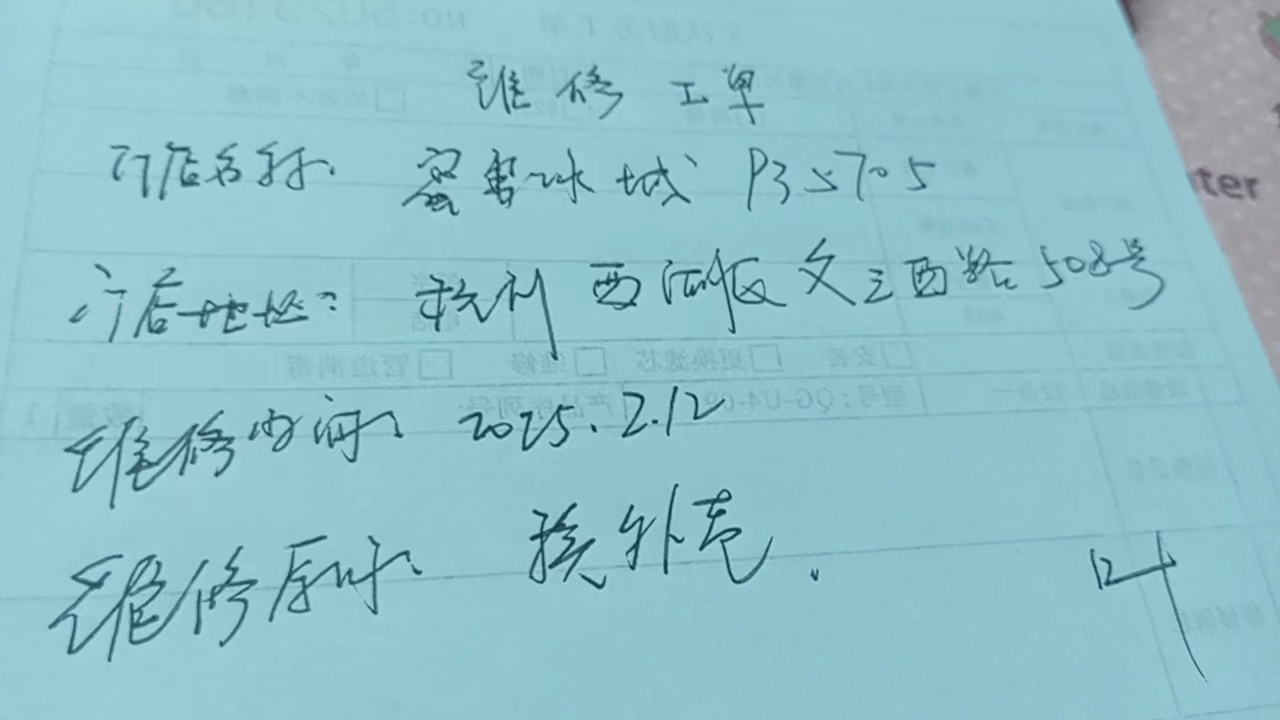 维修工单
门店名称: 蜜雪冰城 P35705
门店地址: 杭州西湖区文三西路508号
维修时间: 2025.2.12
维修原因: 换外壳.
ter